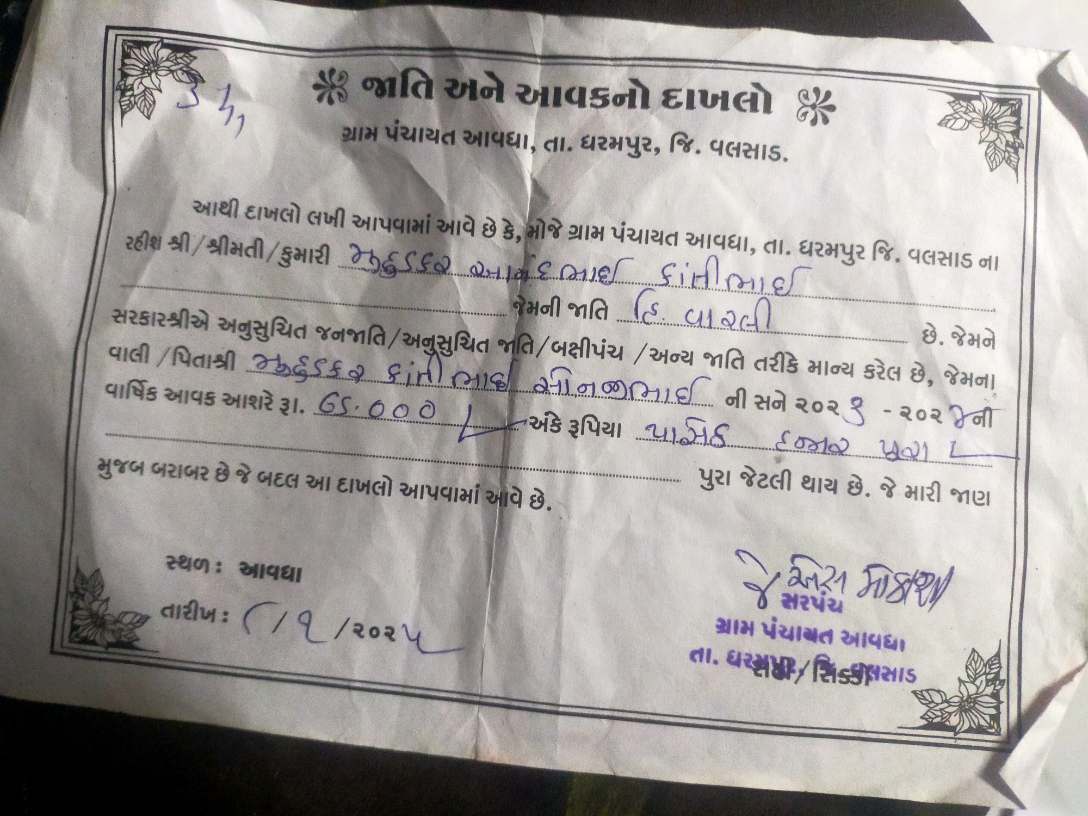 જાતિ અને આવકનો દાખલો
ગ્રામ પંચાયત આવધા, તા. ધરમપુર, જિ. વલસાડ.
આથી દાખલો લખી આપવામાં આવે છે કે, મોજે ગ્રામ પંચાયત આવધા, તા. ધરમપુર જિ. વલસાડ ના
રહીશ શ્રી/શ્રીમતી/કુમારી આનંદભાઈ કાંતીભાઈ
જેમની જાતિ હિ. વારલી છે. જેમને
સરકારશ્રીએ અનુસુચિત જનજાતિ/અનુસુચિત જાતિ/બક્ષીપંચ /અન્ય જાતિ તરીકે માન્ય કરેલ છે, જેમના
વાલી /પિતાશ્રી કાંતીભાઈ સોનજીભાઈ ની સને ૨૦૨૩ - ૨૦૨૪ની
વાર્ષિક આવક આશરે રૂા. ૬૫.૦૦૦ અંકે રૂપિયા હજાર પુરા
પુરા જેટલી થાય છે. જે મારી જાણ
મુજબ બરાબર છે જે બદલ આ દાખલો આપવામાં આવે છે.
સ્થળ : આવધા
તારીખ : ૮/૧/૨૦૨૫
સરપંચ
ગ્રામ પંચાયત આવધા
તા. ધરમપુર, જિ. વલસાડ
સહી/સિક્કા